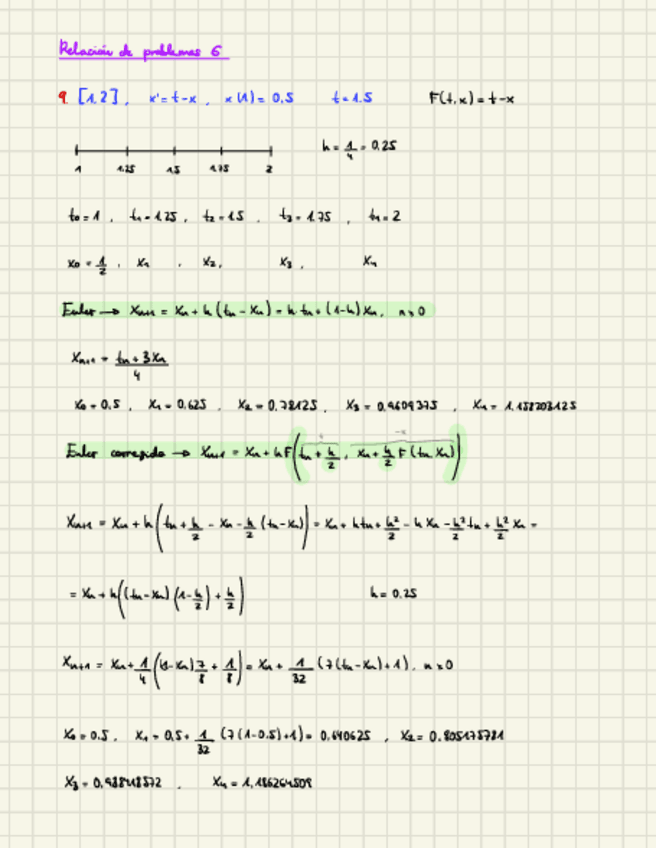 Relación de problemas 6
9. [1,2], x' = t-x, x(1) = 0.5 t = 1.5 F(t,x) = t-x
h = 1/4 = 0.25
1 1.25 1.5 1.75 2
t₀ = 1, t₁ = 1.25, t₂ = 1.5, t₃ = 1.75, t₄ = 2
x₀ = 1/2, x₁, x₂, x₃, x₄
Euler → xₙ₊₁ = xₙ + h(tₙ - xₙ) = h·tₙ + (1-h)xₙ, n≥0
xₙ₊₁ = (tₙ + 3xₙ)/4
x₀ = 0.5, x₁ = 0.625, x₂ = 0.78125, x₃ = 0.9609375, x₄ = 1.158203125
t -x
Euler corregido → xₙ₊₁ = xₙ + hF(tₙ + h/2, xₙ + h/2 F(tₙ,xₙ))
xₙ₊₁ = xₙ + h(tₙ + h/2 - xₙ - h/2 (tₙ-xₙ)) = xₙ + htₙ + h²/2 - hxₙ - h²/2 tₙ + h²/2 xₙ =
= xₙ + h((tₙ-xₙ)(1-h/2) + h/2) h = 0.25
xₙ₊₁ = xₙ + 1/4 ((tₙ-xₙ) 7/8 + 1/8) = xₙ + 1/32 (7(tₙ-xₙ)+1), n≥0
x₀ = 0.5, x₁ = 0.5 + 1/32 (7(1-0.5)+1) = 0.640625, x₂ = 0.805175781
x₃ = 0,988418572, x₄ = 1,186264509